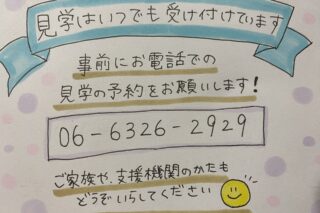 見学はいつでも受け付けています
事前にお電話での
見学の予約をお願いします!
06-6326-2929
ご家族や、支援機関のかたも
どうぞいらしてください